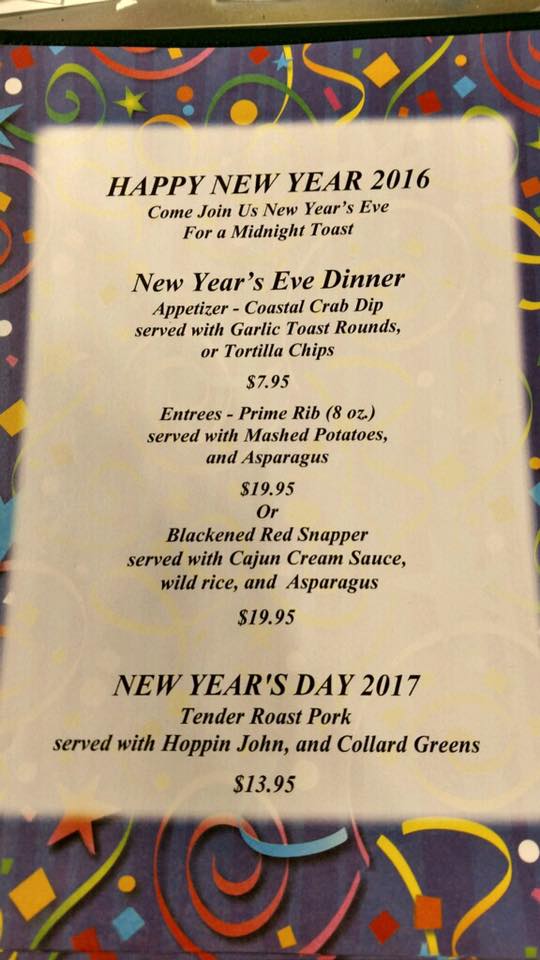 HAPPY NEW YEAR 2016
Come Join Us New Year's Eve
For a Midnight Toast
New Year's Eve Dinner
Appetizer - Coastal Crab Dip
served with Garlic Toast Rounds,
or Tortilla Chips
$7.95
Entrees - Prime Rib (8 oz.)
served with Mashed Potatoes,
and Asparagus
$19.95
Or
Blackened Red Snapper
served with Cajun Cream Sauce,
wild rice, and Asparagus
$19.95
NEW YEAR'S DAY 2017
Tender Roast Pork
served with Hoppin John, and Collard Greens
$13.95